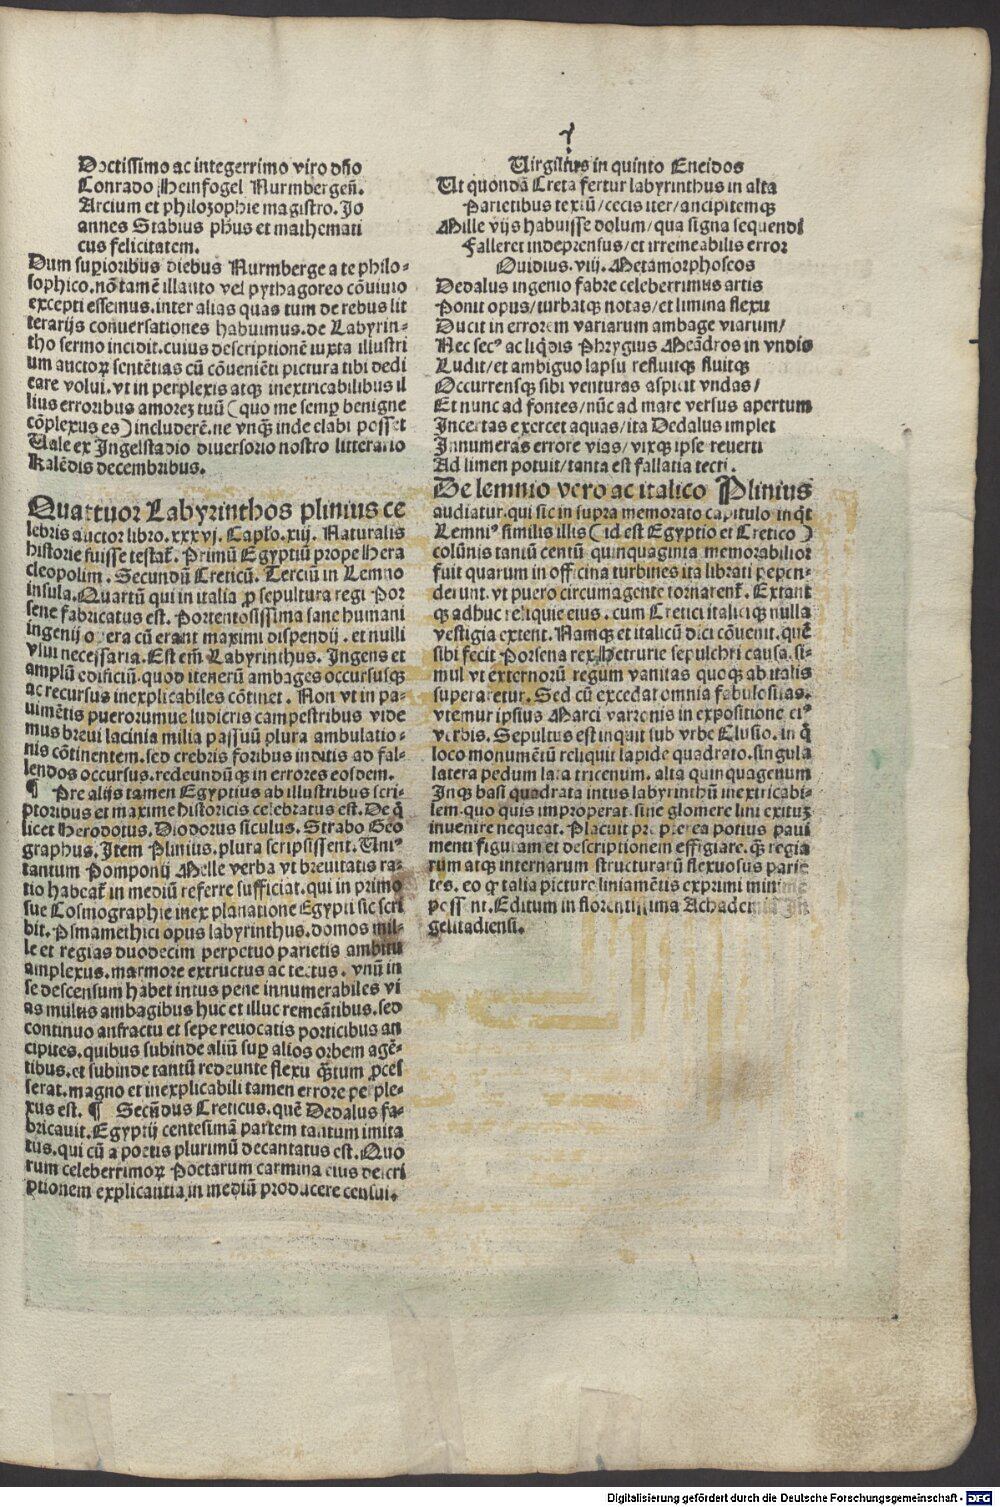 Doctissimo ac integerrimo viro dño
Conrado Heinfogel Nurmbergeñ.
Arcium et philozophie magistro. Jo
annes Stabius phus et mathemati
cus felicitatem.
Dum supioribus diebus Nurmberge a te philo-
sophico. nõ tamẽ illauto vel pythagoreo cõuiuio
excepti essemus. inter alias quas tum de rebus lit
terarijs conuersationes habuimus. de Labyrin-
tho sermo incidit. cuius descriptionẽ iuxta illustri
um auctoꝝ sentẽtias cũ cõueniẽti pictura tibi dedi
care volui. vt in perplexis atqꝫ inextricabilibus il
lius erroribus amorẽ tuũ (quo me semꝑ benigne
cõplexus es) includerẽ. ne vnqꝫ inde elabi posset
Uale ex Jngelstadio diuersorio nostro litterario
Kalẽdis decembribus.
Quattuor Labyrinthos plinius ce
lebris auctor libro. xxxvj. Caplo. xiij. Naturalis
historie fuisse testat̃. Primũ Egyptiũ prope Hera
cleopolim. Secundũ Creticũ. Terciũ in Lemno
insula. Quartũ qui in italia ꝓ sepultura regi Por
sene fabricatus est. Portentosissima sane humani
ingenij opera cũ erant maximi dispendij. et nulli
vsui necessaria. Est em̃ Labyrinthus. Jngens et
amplũ edificiũ. quod itenerũ ambages occursusqꝫ
ac recursus inexplicabiles cõtinet. Non vt in pa-
uimẽtis puerorumue ludicris campestribus vide
mus breui lacinia milia passuũ plura ambulatio-
nis cõtinentem. sed crebris foribus inditis ad fal-
lendos occursus. redeundũqꝫ in errores eosdem.
¶ Pre alijs tamen Egyptius ab illustribus scri-
ptoribus et maxime historicis celebratus est. De q̃
licet Herodotus. Diodorus siculus. Strabo Geo
graphus. Jtem Plinius. plura scripsissent. Uniꝰ
tantum Pomponij Melle verba vt breuitatis ra-
tio habeat̃ in mediũ referre sufficiat. qui in primo
sue Cosmographie inex planatione Egypti sic scri
bit. Psmamethici opus labyrinthus. domos mil-
le et regias duodecim perpetuo parietis ambitu
amplexus. marmore extructus ac tectus. vnũ in
se descensum habet intus pene innumerabiles vi
as multis ambagibus huc et illuc remeãtibus. sed
continuo anfractu et sepe reuocatis porticibus an
cipites. quibus subinde aliũ suꝑ alios orbem agẽ-
tibus. et subinde tantũ redeunte flexu qꝫtum ꝓces
serat. magno et inexplicabili tamen errore perple-
xus est. ¶ Secũdus Creticus. quẽ Dedalus fa-
bricauit. Egyptij centesimã partem tantum imita
tus. qui cũ a poetis plurimũ decantatus est. Quo
rum celeberrimoꝝ Poetarum carmina eius descri
ptionem explicantia in mediũ producere censui.
Uirgilius in quinto Eneidos
Ut quondã Creta fertur labyrinthus in alta
Parietibus textũ/cecis iter/ancipitemqꝫ
Mille vijs habuisse dolum/qua signa sequendi
Falleret indeprensus/et irremeabilis error
Ouidius. viij. Metamorphoseos
Dedalus ingenio fabre celeberrimus artis
Ponit opus/turbatqꝫ notas/et limina flexu
Ducit in errorem variarum ambage viarum/
Nec secꝰ ac liq̃dis Phrygius Meãdros in vndis
Ludit/et ambiguo lapsu refluitqꝫ fluitqꝫ
Occurrensqꝫ sibi venturas aspicit vndas/
Et nunc ad fontes/nũc ad mare versus apertum
Jncertas exercet aquas/ita Dedalus implet
Jnnumeras errore vias/vixqꝫ ipse reuerti
Ad limen potuit/tanta est fallatia tecti.
De lemnio vero ac italico Plinius
audiatur. qui sic in supra memorato capitulo inq̃t
Lemniꝰ similis illis (id est Egyptio et Cretico)
colũnis tantũ centũ quinquaginta memorabilior
fuit quarum in officina turbines ita librati pepen-
derunt. vt puero circumagente tornarent̃. Extant
qꝫ adhuc reliquie eius. cum Cretici italiciqꝫ nulla
vestigia extent. Namqꝫ et italicũ dici cõuenit. quẽ
sibi fecit Porsena rex Hetrurie sepulchri causa. si-
mul vt externorũ regum vanitas quoqꝫ ab italis
superaretur. Sed cũ excedat omnia fabulositas.
vtemur ipsius Marci varronis in expositione eiꝰ
verbis. Sepultus est inquit sub vrbe Clusio. in q̃
loco monumẽtũ reliquit lapide quadrato. singula
latera pedum lata tricenum. alta quinquagenum
Jnqꝫ basi quadrata intus labyrinthũ inextricabi-
lem. quo quis improperat sine glomere lini exitum
inuenire nequeat. Placuit propterea potius paui
menti figuram et descriptionem effigiare. qꝫ regia
rum atqꝫ internarum structurarũ flexuosus parie
tes. eo ꝙ talia picture liniamẽtis exprimi minime
possent. Editum in florentissima Achademia Jn
gelstadiensi.
Digitalisierung gefördert durch die Deutsche Forschungsgemeinschaft - DFG